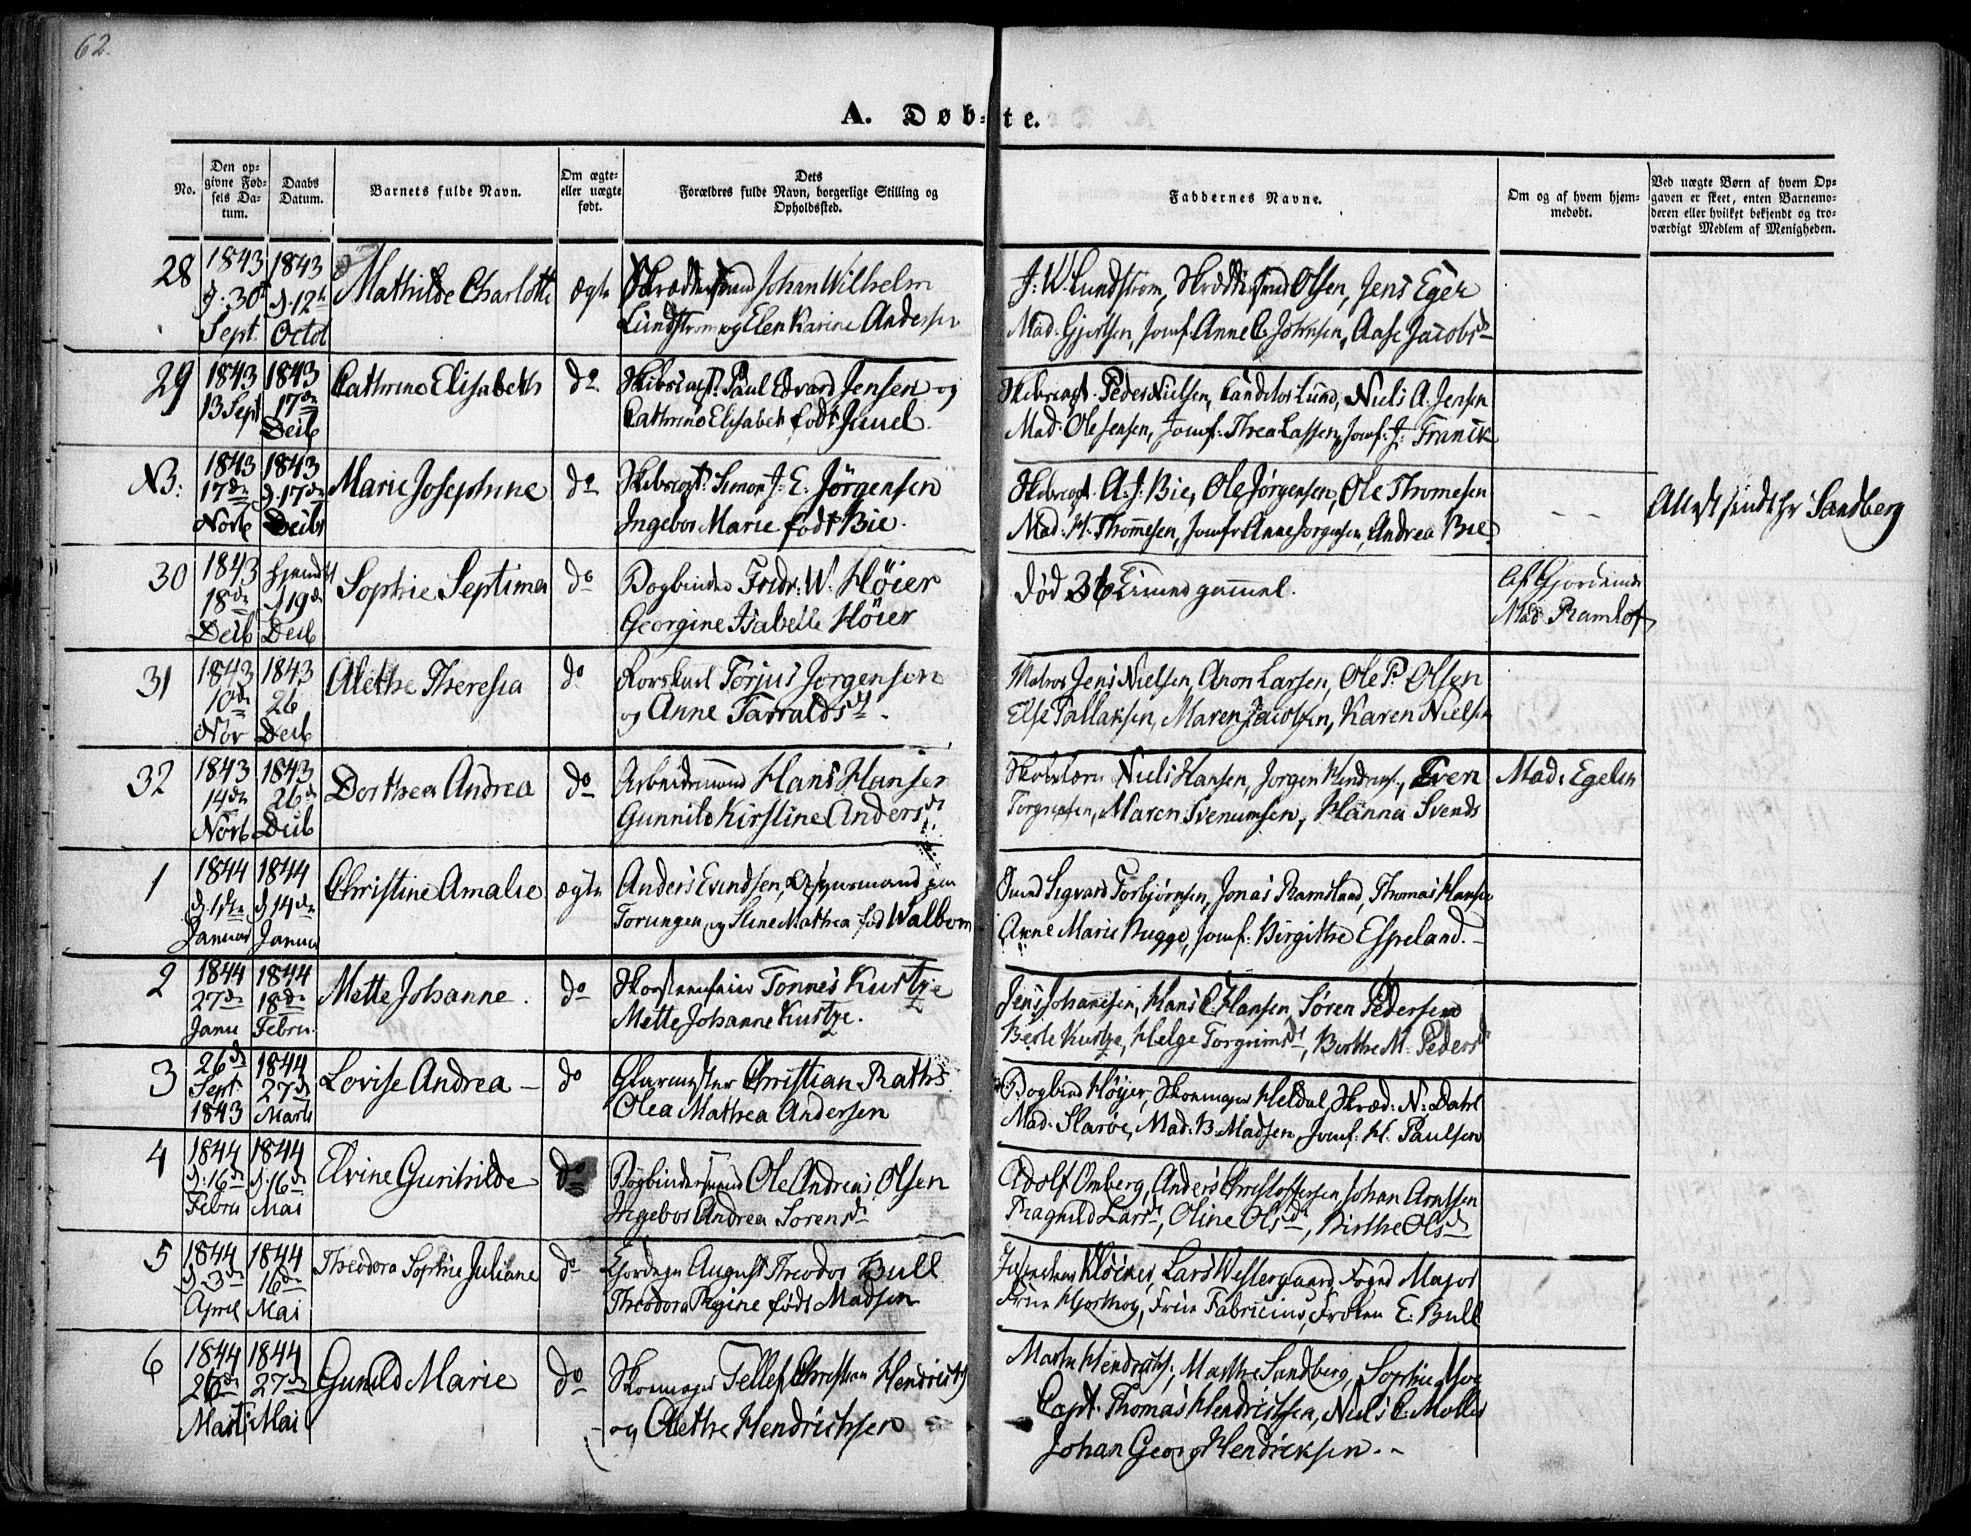 62.
A. Døbte.
No.
Den opgivne Fødsels Datum.
Daabs Datum.
Barnets fulde Navn.
Om ægte eller uægte født.
Dets Forældres fulde Navn, borgerlige Stilling og Opholdssted.
Faddernes Navne.
Om og af hvem hjemmedøbt.
Ved uægte Børn af hvem Opgaven er skeet, enten Barnemoderen eller hvilket bekjendt og troværdigt Medlem af Menigheden.
28 1843 d. 30t Sept. 1843 d. 12t Octob Mathilde Charlotte ægte Skræddersvend Johan Wilhelm
Lundstrom og Elen Karine Andersen
J. W. Lundstrom, Skræddersvend Olsen, Jens Eger
Mad. Gjertsen, Jomf. Anne C. Johnsen, Aase Jacobsd
29 1843 13 Sept 1843 17de Decb Cathrine Elisabeth do Skibscapt. Paul Edvard Jensen og
Cathrine Elisabeth født Juuel.
Skibscapt. Peder Nielsen, Candetor Lund, Niels A. Jensen
Mad. Ole Jensen, Jomf. Thea Lassen, Jomf. J. Franck
NB: 1843 17de Novb 1843 d. 17de Decbr Marie Josephine do Skibscapt. Simon J. E. Jörgensen
Ingebor Marie født Bie.
Skibscapt. A. J. Bie, Ole Jørgensen, Ole Thomesen
Mad. H. Thomesen, Jomfr Anne Jorgensen, Andrea Bie
Attest sendt hr Sandberg
30 1843 18de Decb hjemdbt d 19de Decb Sophie Septima do Bogbinder Fridr. W. Höier
Georgine Isabelle Höier
død 36 Timer gammel.
Af Gjordemoder
Mad. Ramlof
31 1843 10de Nov 1843 26 Decb Alethe Theresia do Torjus Jorgensen
og Anne Tarraldsd.
Matros Jens Nielsen, Anon Larsen, Ole P. Olsen
Else Tallaksen, Maren Jacobsen, Karen Nielsen
32 1843 14de Novb 1843 26de Decb Dorthea Andrea do Arbeidsmand Hans Hansen
Gunnild Kirstine Andersd.
Skolelærer Niels Hansen, Jorgen Hendrichs., Even
Torgersen, Maren Svenumsen, Hanna Svends
Mad. Egelin
1 1844 d. 1ste Januar 1844 d. 14de Janua Christine Amalie ægte Anders Evendsen, Opsynsmand paa
Torungen og Stine Mathea fød Walbom
Svend Sigvard Torbjörnsen, Jonas Ramsland, Thomas Hansen
Anne Marie Bugge, Jomf. Birgithe Espeland.
2 1844 27de Janu 1844 18de Febru. Mette Johanne. do Skorsteensfeier Tonnes Kustze
Mette Johanne Kustze.
Jens Johannesen, Hans C. Hansen, Søren Pedersen
Berte Kustze, Helge Torgrimsd, Birthe M. Pedersd
3 26de Sept 1843 1844 27de Marts Lovise Andrea do Glarmester Christian Raths
Olea Mathea Andersen
Bogbind Höyer, Skomager Heldal, Skræd. N. Dahl
Mad. Slaroe, Mad. B. Madsen, Jomf. H. Paulsen
4 1844 d. 16de Febru 1844 d. 16de Mai Elvine Gunhilde do Bogbindersvend Ole Andreas Olsen
Ingebor Andrea Sorensd
Adolf Omberg, Anders Christoffersen, Johan Arntsen
Ragnild Larsd, Oline Olsd, Birthe Olsd
5 1844 d. 3de April 1844 16de Mai Theodora Sophie Juliane do August Theodor Bull
Theodora Regine født Madsen
Klöcker, Lars Westergaard, Foged Major
Frue Hjorthoy, Frue Fabricius, Frøken E. Bull
6 1844 26de Marts 1844 27de Mai Gunild Marie do Skomager Tellef Christian Hendrichs
og Alethe Hendrichsen
Marthe Hendrichs., Marthe Sandberg, Sophie Moe
Capt. Thomas Hendrichsen, Niels C. Moller
Johan Georg Hendricksen